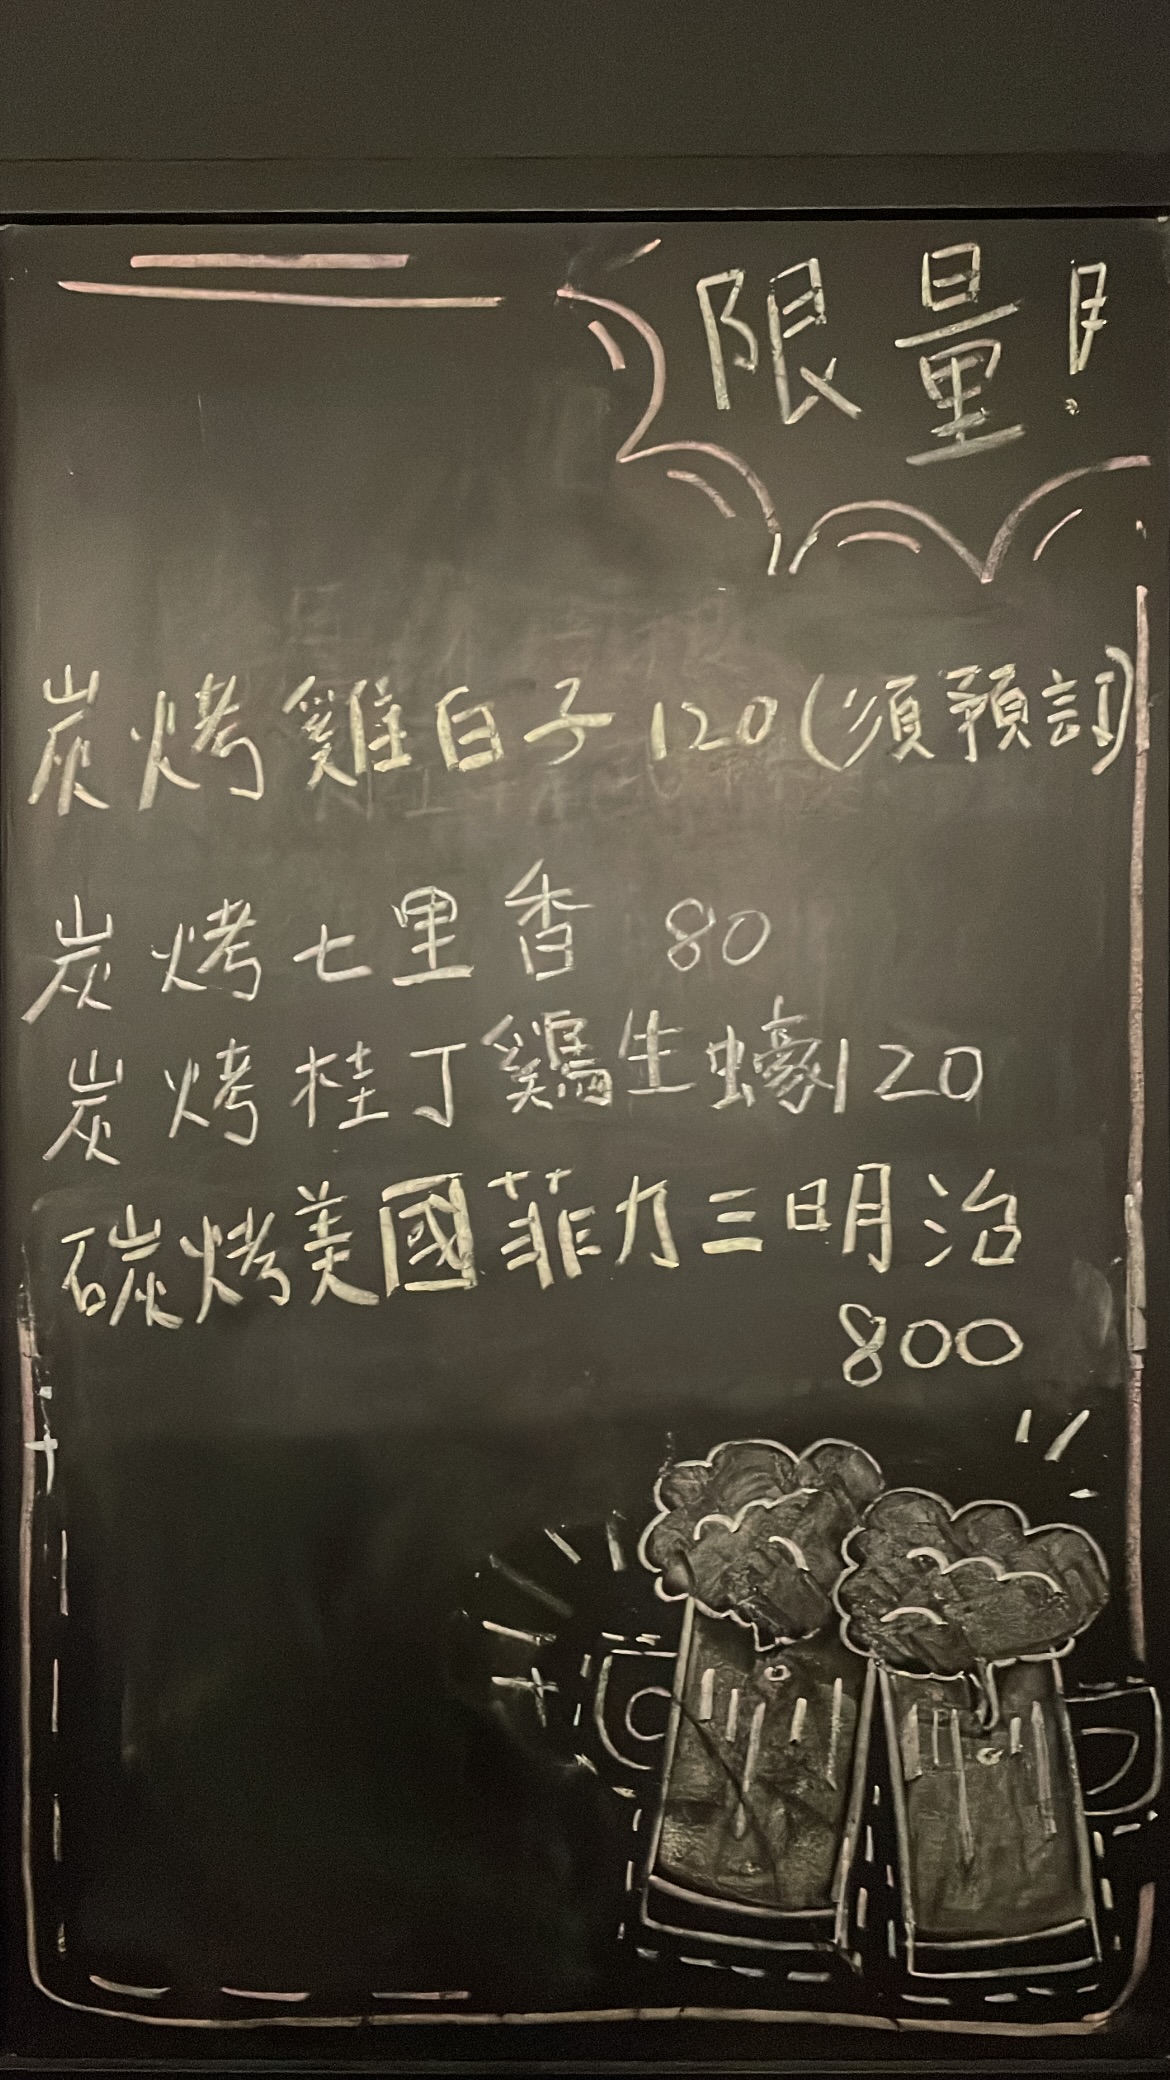 限量!
炭烤雞白子 120(須預訂)
炭烤七里香 80
炭烤桂丁鷄生蠔120
碳烤美國菲力三明治
800